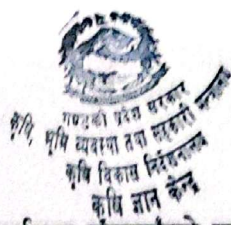 गण्डकी प्रदेश सरकार
कृषि, भूमि व्यवस्था तथा सहकारी मन्त्रालय
कृषि विकास निर्देशनालय
कृषि ज्ञान केन्द्र